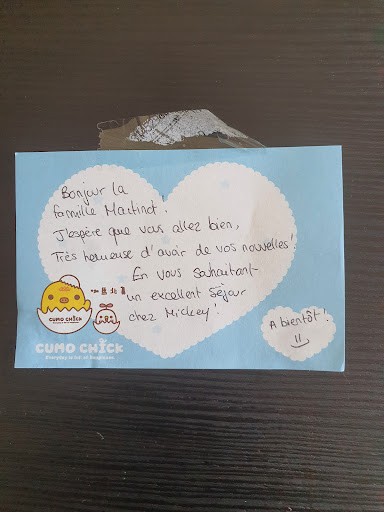 Bonjour la
famille Martinet,
J'espère que vous allez bien,
Très heureuse d'avoir de vos nouvelles!
En vous souhaitant
un excellent séjour
chez Mickey!
A bientôt!
CUMO CHICK
CUMO CHICK